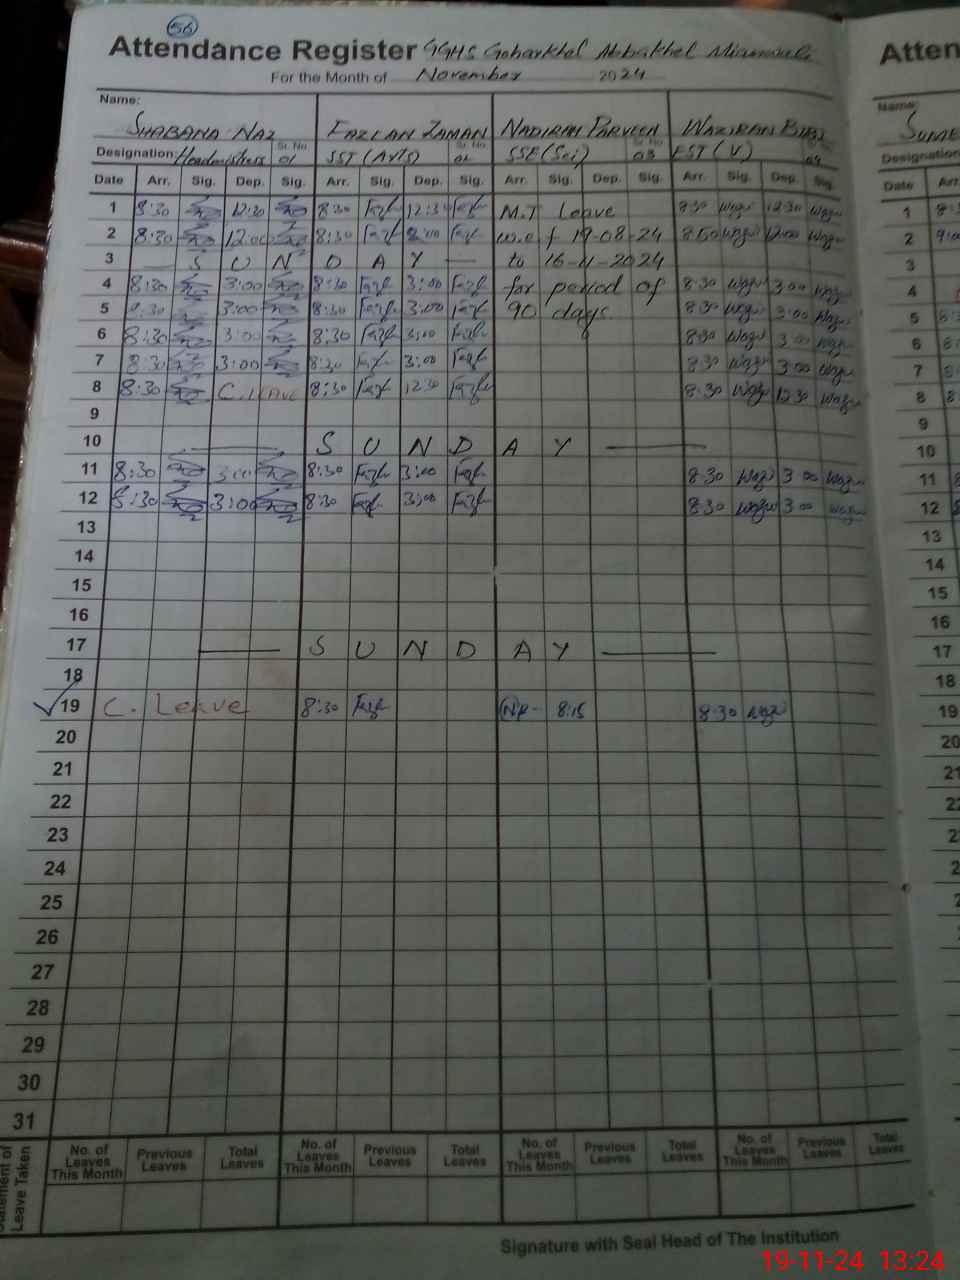 56
Attendance Register GGHS Goharkhel Abbakhel Mianwali
For the Month of November 2024
Name:
SHABANA NAZ FAZLAN ZAMAN NADIRAH PARVEEN WAZIRAN BIBI
Designation: Headmistress Sr. No 01 SST (Arts) Sr. No 02 SSE (Sci) Sr. No 03 EST (V) 04
Date Arr. Sig. Dep. Sig. Arr. Sig. Dep. Sig. Arr. Sig. Dep. Sig. Arr. Sig. Dep. Sig.
1 8:30 12:30 8:30 Fazl 12:30 Fazl M.T Leave 8:30 Wazir 12:30 Wazir
2 8:30 12:00 8:30 Fazl Fazl w.e.f 19-08-24 Wazir 12:00 Wazir
3 SUNDAY to 16-11-2024
4 8:30 3:00 8:30 Fazl 3:00 Fazl for period of 8:30 Wazir 3:00 Wazir
5 8:30 3:00 8:30 Fazl 3:00 Fazl 90 days 8:30 Wazir 3:00 Wazir
6 8:30 3:00 8:30 Fazl 3:00 Fazl 8:30 Wazir 3:00 Wazir
7 8:30 3:00 8:30 Fazl 3:00 Fazl 8:30 Wazir 3:00 Wazir
8 8:30 C. LEAVE 8:30 Fazl 12:30 Fazl 8:30 Wazir 12:30 Wazir
9
10 SUNDAY
11 8:30 3:00 8:30 Fazl 3:00 Fazl 8:30 Wazir 3:00 Wazir
12 8:30 3:00 8:30 Fazl 3:00 Fazl 8:30 Wazir 3:00 Wazir
13
14
15
16
17 SUNDAY
18
19 C. Leave 8:30 Fazl 8:15 8:30 Wazir
20
21
22
23
24
25
26
27
28
29
30
31
Leave Taken
No. of Leaves This Month Previous Leaves Total Leaves No. of Leaves This Month Previous Leaves Total Leaves No. of Leaves This Month Previous Leaves Total Leaves No. of Leaves This Month Previous Leaves Total Leaves
Signature with Seal Head of The Institution
19-11-24 13:24
Atten
Name:
Designation
Date Arr
1
2
3
4
5
6
7
8
9
10
11
12
13
14
15
16
17
18
19
20